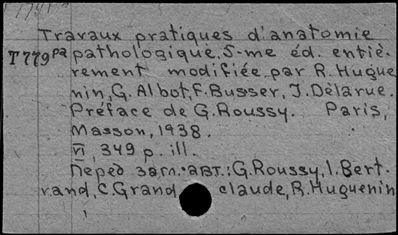 Travaux pratiques d'anatomie
T779pa pathologique. 5-me éd. entiè-
rement modifiée par R. Hugue
nin, G. Albot, F. Busser, J. Delarue.
Préface de G. Roussy. Paris,
Masson, 1938.
VI, 349 p. ill.
Перед загл.: авт.: G. Roussy, I. Bert.
rand, C. Grand claude, R. Huguenin